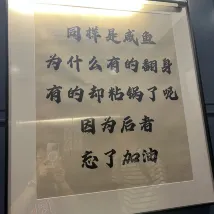 同样是咸鱼
为什么有的翻身
有的却粘锅了呢
因为后者
忘了加油